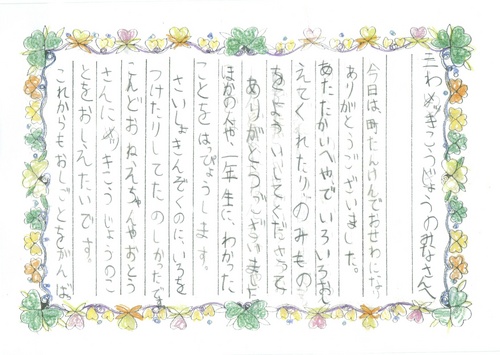 三わメッキこうじょうのみなさんへ
今日は、町たんけんでおせわにな
ありがとうございました。
あたたかいへやでいろいろおし
えてくれたり、のみもの
をよういしてくださって
ありがとうございました
ほかの人や、一年生に、わかった
ことをはっぴょうします。
さいしょきんぞくのに、いろを
つけたりしてたのしかたです
こんどおねえちゃんやおとう
さんにメッキこうじょうのこ
とをおしえたいです。
これからもおしごとをがんば